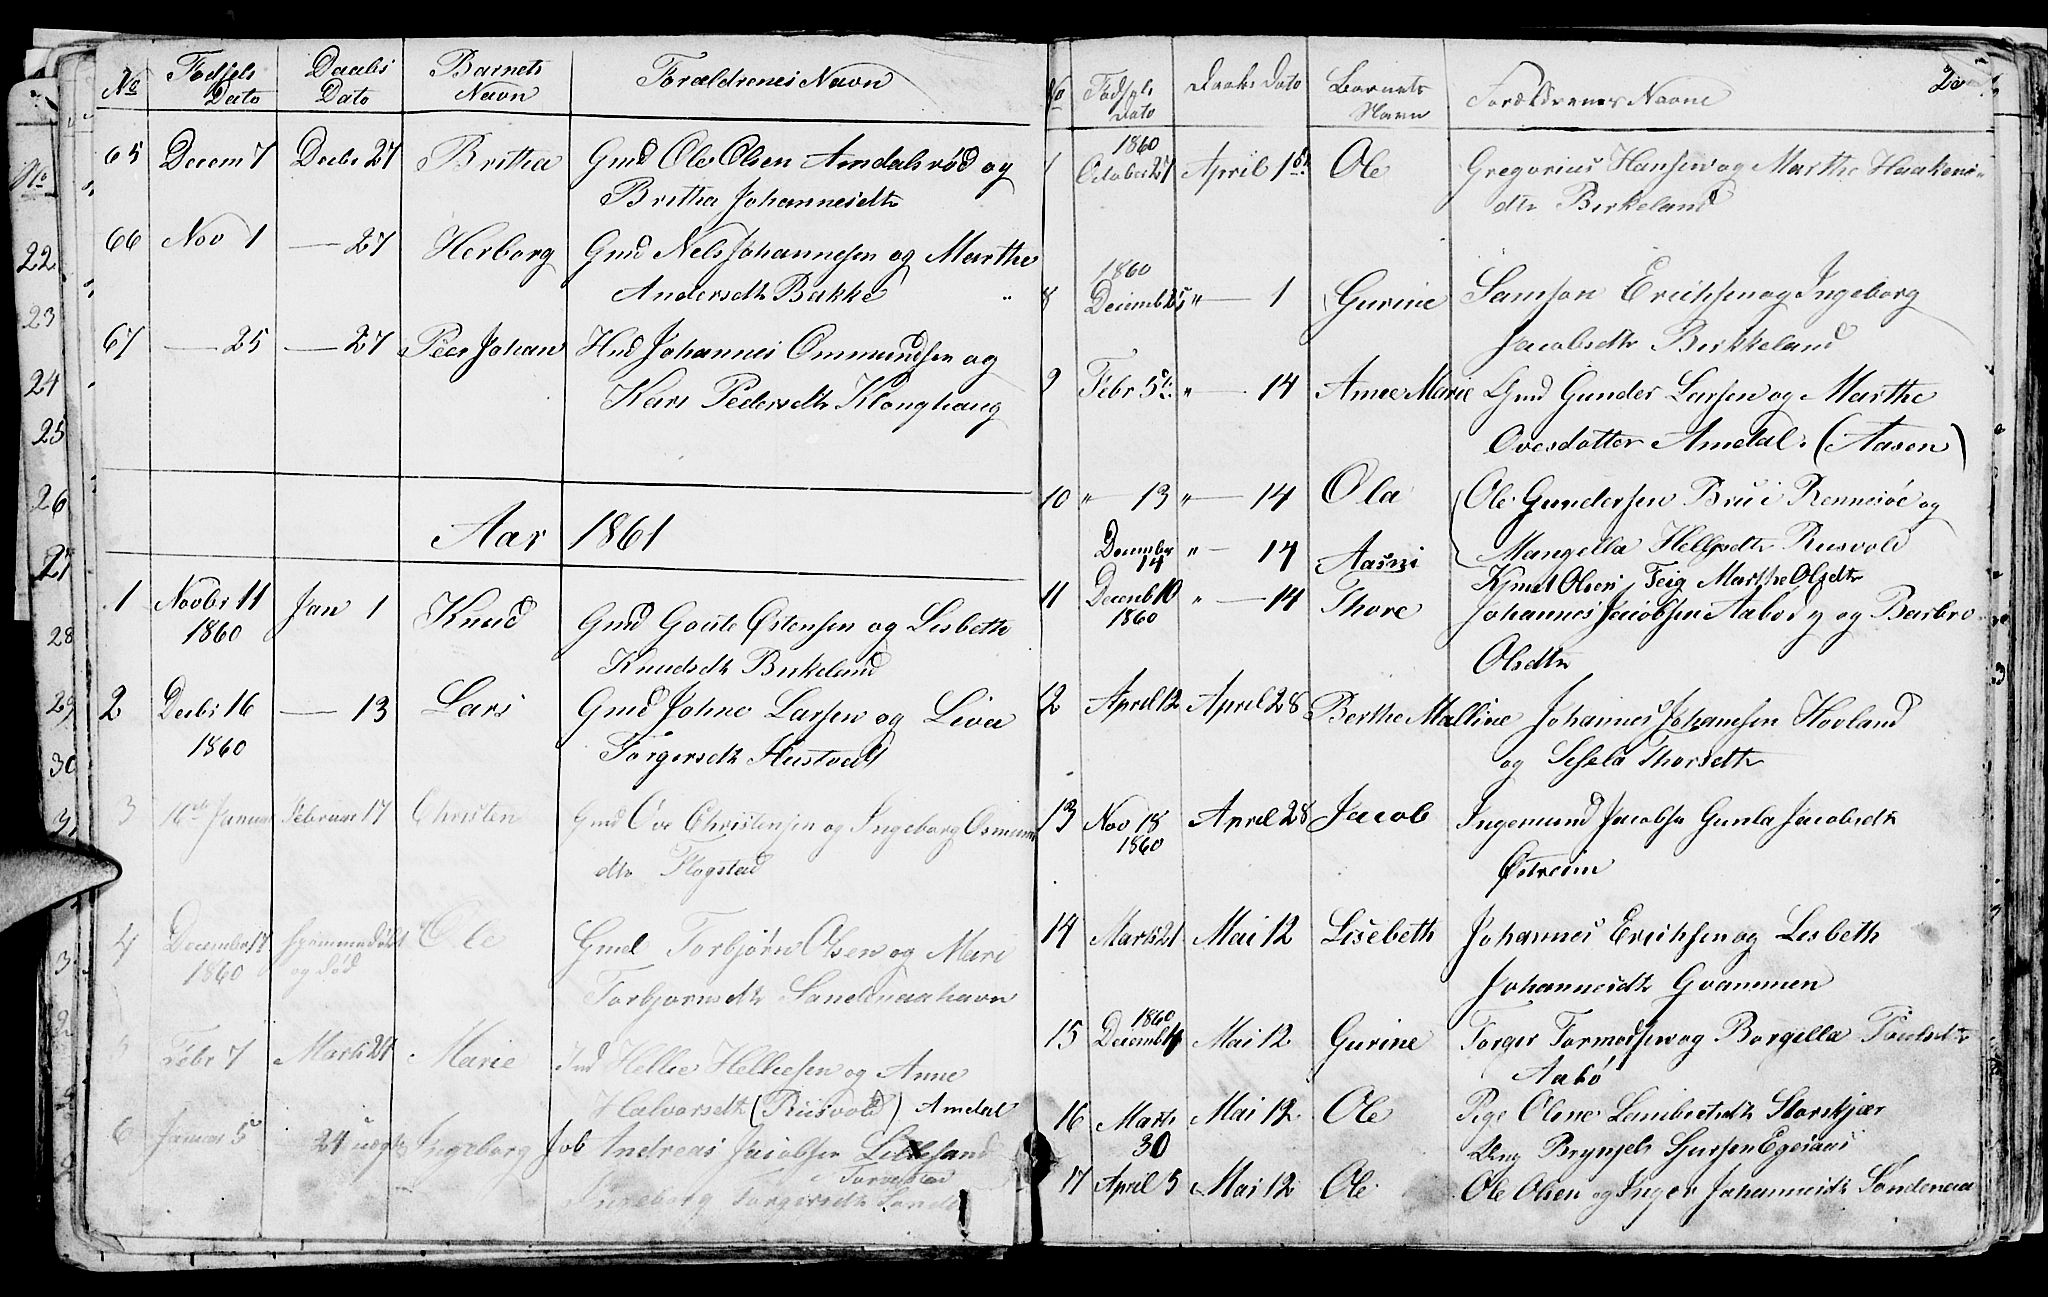 No Fødsels Dato Daabs Dato Barnets Navn Forældrenes Navn
65 Decem 7 Decbr 27 Britha Gmd Ole Olsen Amdalsrød og
Britha Johannesdtr
66 Nov 1 — 27 Herborg Gmd Nels Johannesen og Marthe
Andersdtr Bakke
67 — 25 — 27 Peer Johan Hmd Johannes Ommundsen og
Kari Pedersdtr Klonghaug
Aar 1861
1 Novbr 11 Jan 1 Knud Gmd Goute Østensen og Lisbeth
1860 Knudsdtr Birkeland
2 Decbr 16 — 13 Lars Gmd Johne Larsen og Liva
1860 Torgersdtr Hustvedt
3 16de Januar Februar 17 Christen Gmd Ove Christensen og Ingeborg Osmun
dtr Flogstad
4 December 17 hjemmedøbt Ole Gmd Torbjørn Olsen og Mari
1860 og død Torbjørnsdtr Søndenaahavn
5 Febr 7 Marts 24 Marie Ind Hellie Helliesen og Anne
Halvorsdtr (Riisvold) Amdal
6 Januar 5 24 uægte Ingeborg Job Andreas Jacobsen Lillesand
Torvestad
Ingeborg Torgersdtr Lande
22
23
24
25
26
27
28
29
30
No Fødsels Dato Daabs Dato Barnets Navn Forældrenes Navne
1860
October 27 April 1st Ole Gregorius Hansen og Marthe Haakens
dtr Birkeland
1860
8 Decimb 25 " — 1 Gurine Samson Erichsen og Ingeborg
Jacobsdtr Birkeland
9 Febr 5te " — 14 Anne Marie Gmd Gunder Larsen og Marthe
Ovesdatter Amdal (Aasen)
10 " — 13 " — 14 Ola Ole Gundersen Bru i Rennesøe og
Mangella Helljesdtr Riisvold
December 14 " — 14 Knut Olsen Teig Marthe Olsdtr
11 Decemb 10 " — 14 Thore Johannes Jacobsen Aabø og Barbro
1860 Olsdtr
12 April 12 April 28 Berthe Malline Johannes Johannesen Hovland
og Sissela Thorsdtr
13 Nov 18 April 28 Jacob Ingemund Jacobsen Gunla Jacobsdtr
1860 Østreim
14 Marts 21 Mai 12 Lisebeth Johannes Erichsen og Lisbeth
Johannesdtr Grammen
1860
15 Decemb 4 Mai 12 Gurine Torger Tormodsen og Borgella Poulsdtr
Aabø
16 Marts Mai 12 Ole Pige Olene Lambertsdtr Storskjær
30 Ung Brynjels Sjursen
17 April 5 Mai 12 Ole Ole Olsen og Inger Johannesdtr Søndenaa